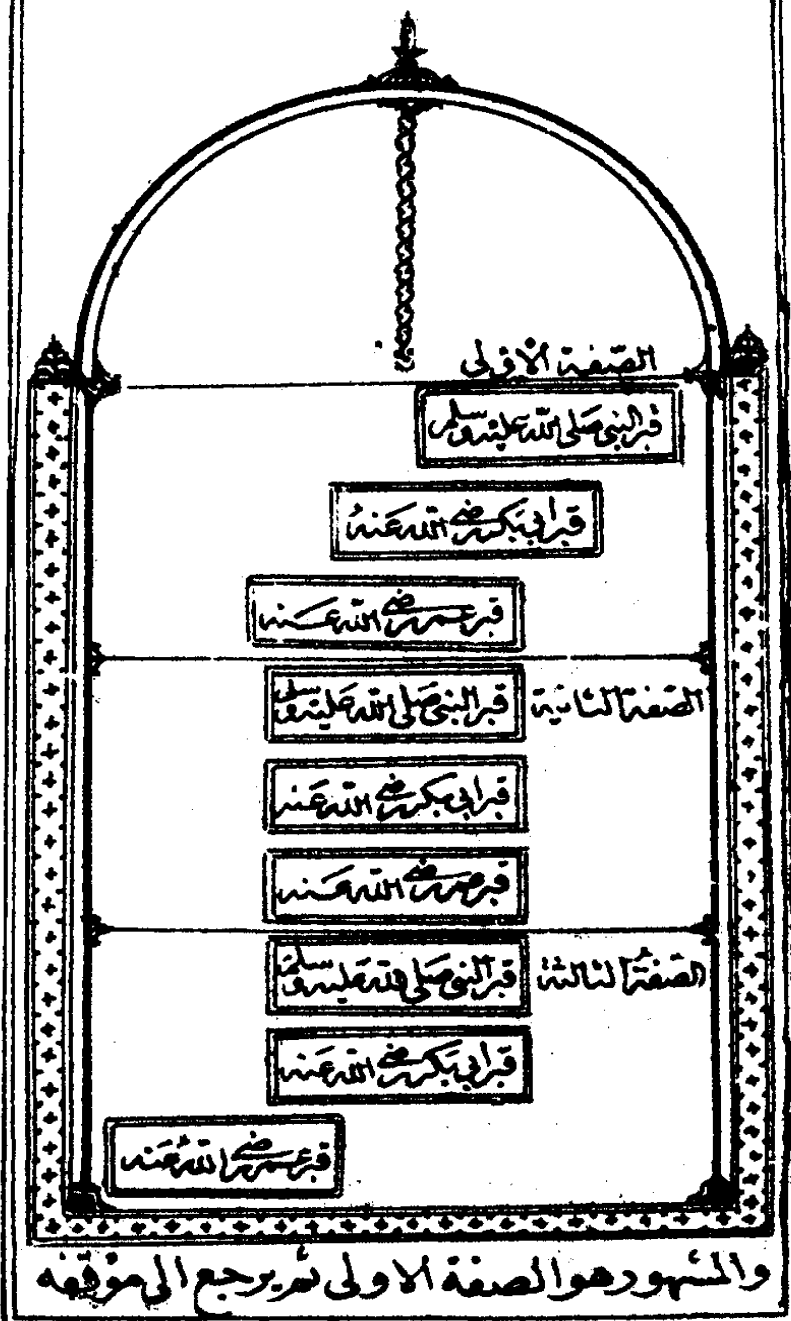 الصّفة الاولى
قبر النبي صَلى الله عليه وسلم
قبر ابي بَكر رضي الله عَنهُ
قبر عمر رضي الله عَنه
الصّفة الثانية
قبر النبي صَلى الله عَليه وسلم
قبر ابي بكر رضي الله عَنه
قبر عمر رضي الله عَنه
الصّفة الثالثة
قبر النبي صَلى الله عَليه وسلم
قبر ابي بَكر رضي الله عَنه
قبر عمر رضي الله عَنه
والمشهور هو الصفة الاولى ثم يرجع الى موقفه